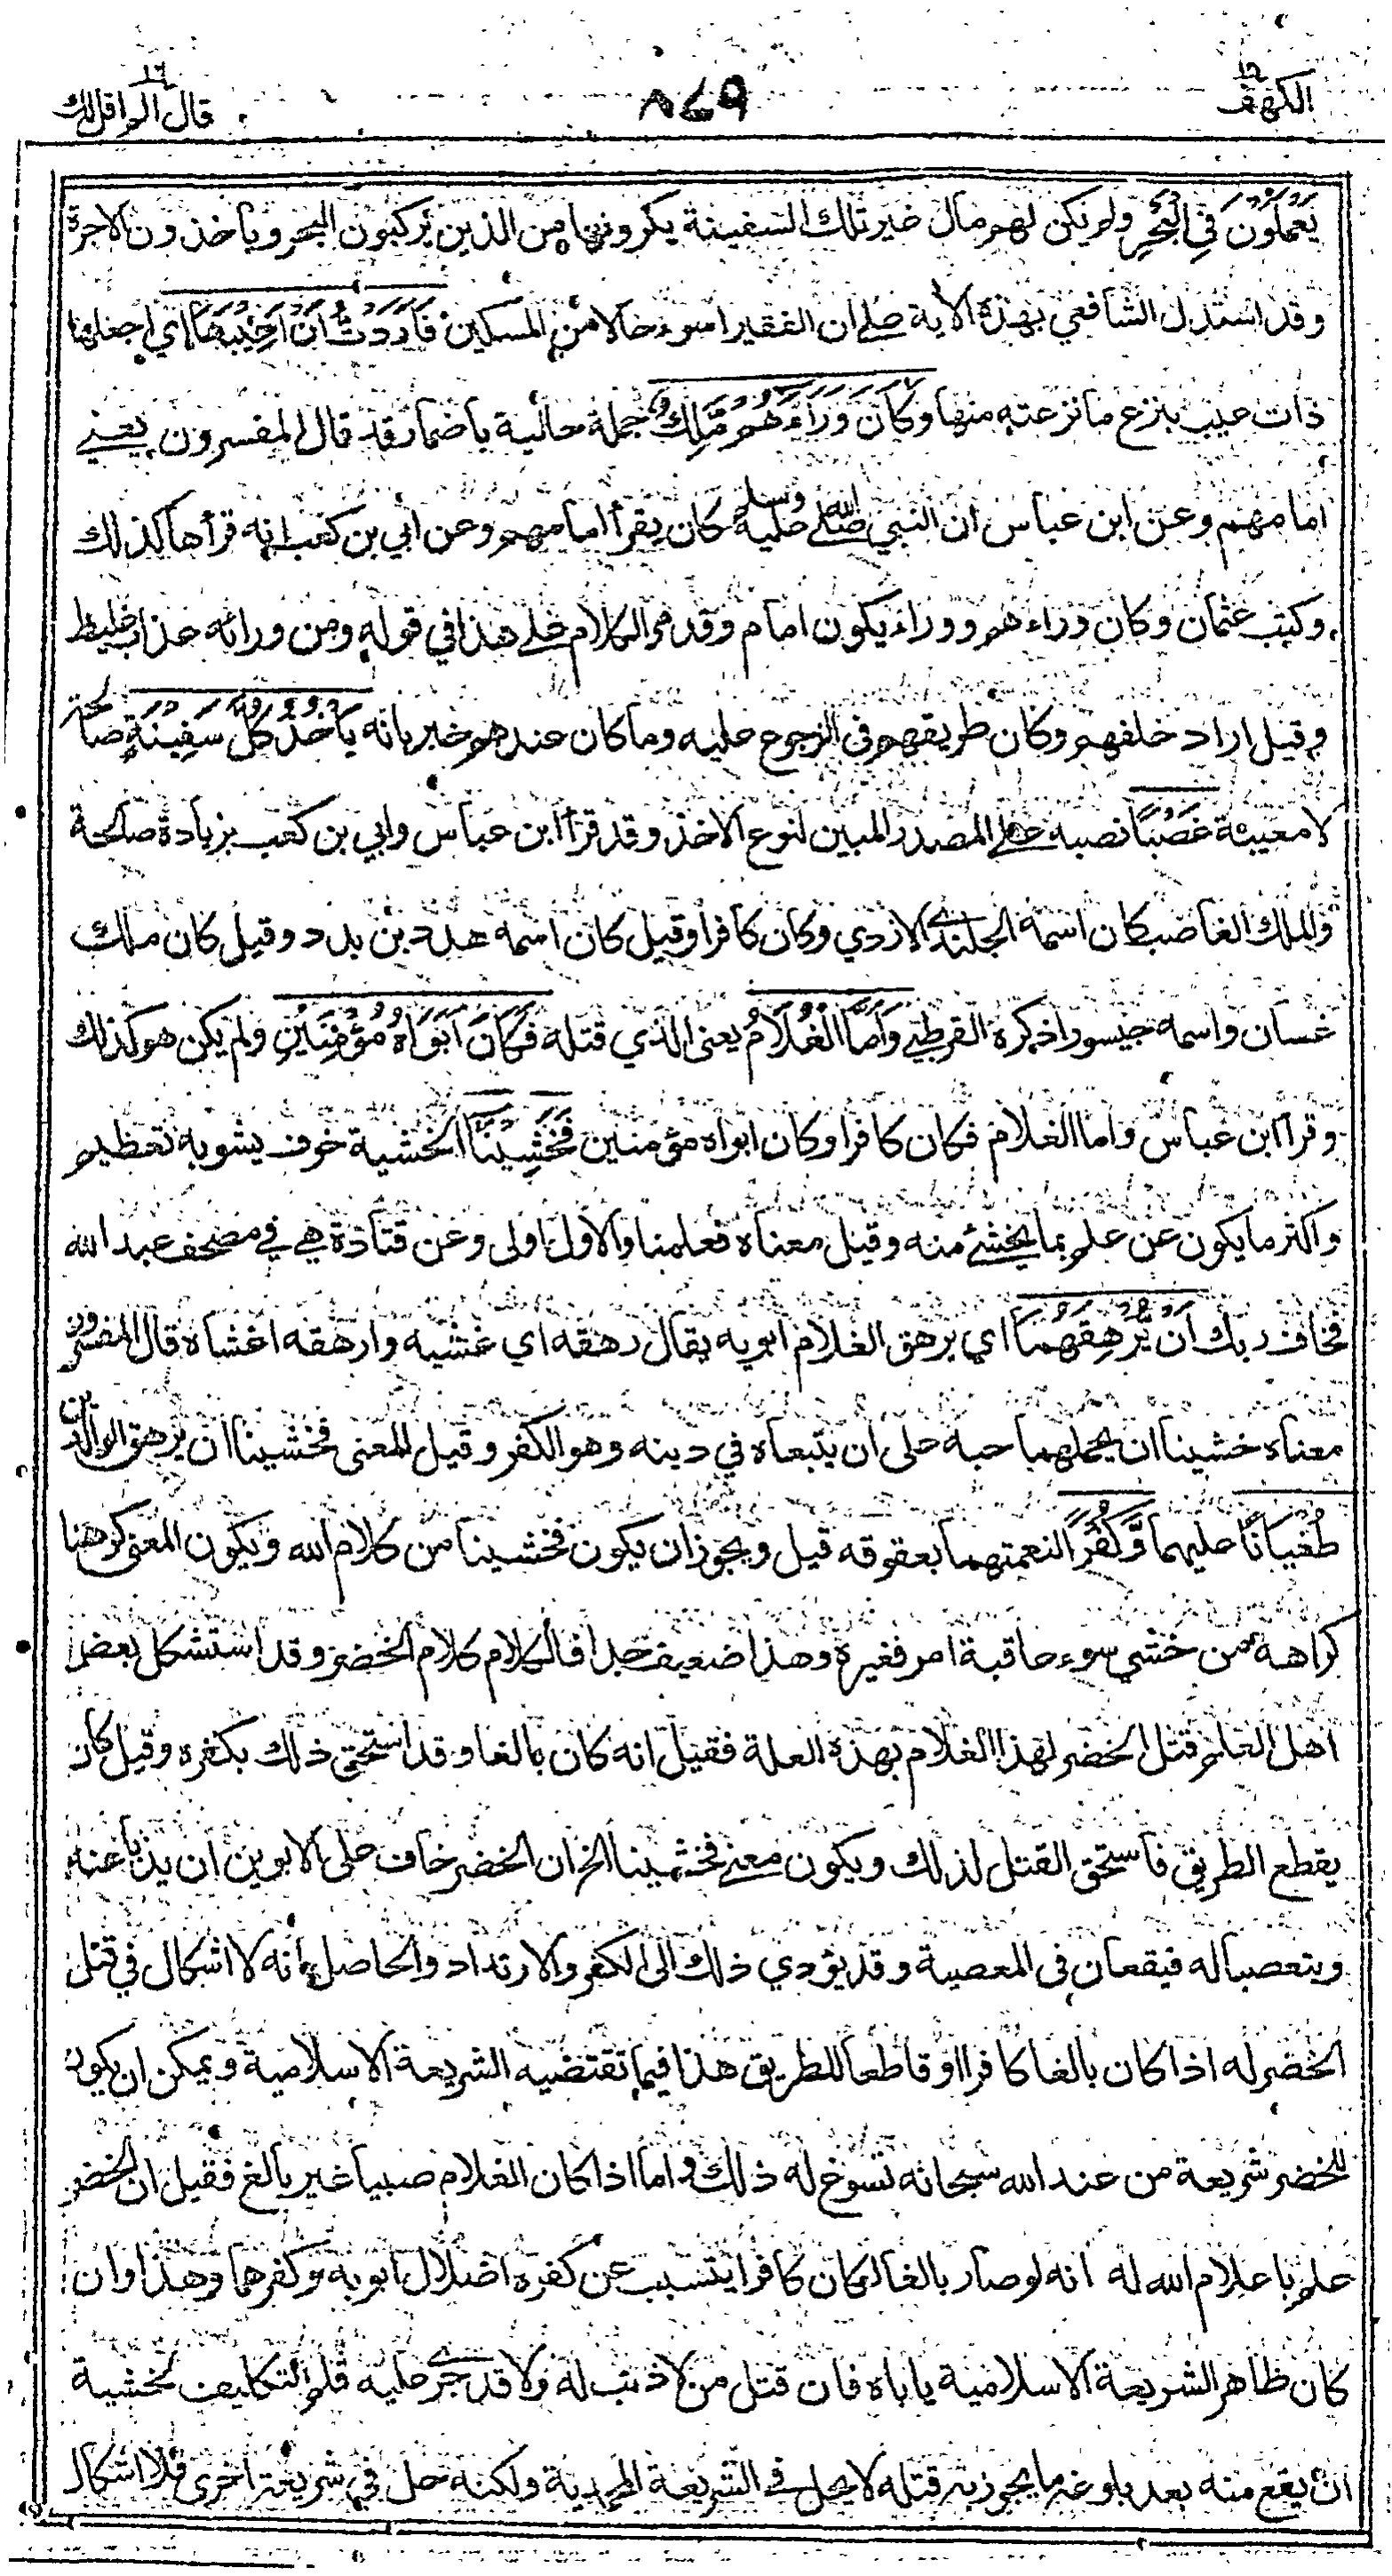 الكهف ١٨
٨٤٩
قال الم اقل لك ١٦
يَعْمَلُونَ فِي الْبَحْرِ ولم يكن لهم مال غير تلك السفينة يكرونها من الذين يركبون البحر ويأخذون الاجرة
وقد استدل الشافعي بهذه الآية على ان الفقير اسوء حالا من المسكين فَأَرَدْتُ أَنْ أَعِيبَهَا اي اجعلها
ذات عيب بنزع ما نزعته منها وَكَانَ وَرَاءَهُمْ مَّلِكٌ جملة حالية باضمار قد قال المفسرون يعني
امامهم وعن ابن عباس ان النبي صلى الله عليه وسلم كان يقرأ امامهم وعن أبي بن كعب انه قرأها كذلك
وكتب عثمان وكان وراءهم ووراء يكون امام وقد مر الكلام على هذا في قوله ومن ورائه عذاب غليظ
وقيل اراد خلفهم وكان طريقهم في الرجوع عليه وما كان عندهم خبر بانه يَأْخُذُ كُلَّ سَفِينَةٍ صالحة
لا معيبة غَصْبًا نصبه على المصدر المبين لنوع الاخذ وقد قرأ ابن عباس وابي بن كعب بزيادة صالحة
والملك الغاصب كان اسمه الجلندى الازدي وكان كافرا وقيل كان اسمه هدد بن بدد وقيل كان ملك
غسان واسمه جيسور اذكره القرطبي وَأَمَّا الْغُلَامُ يعني الذي قتله فَكَانَ أَبَوَاهُ مُؤْمِنَيْنِ ولم يكن هو كذلك
وقرأ ابن عباس واما الغلام فكان كافرا وكان ابواه مؤمنين فَخَشِينَا الخشية خوف يشوبه تعظيم
واكثر ما يكون عن علم بما يخشى منه وقيل معناه فعلمنا والاول اولى وعن قتادة هي في مصحف عبد الله
فخاف ربك أَنْ يُّرْهِقَهُمَا اي يرهق الغلام ابويه يقال رهقه اي غشيه وارهقه اغشاه قال المفسرون
معناه خشينا ان يحملهما حبه على ان يتبعاه في دينه وهو الكفر وقيل المعنى فخشينا ان يرهق الوالدين
طُغْيَانًا عليهما وَّكُفْرًا لنعمتهما بعقوقه قيل ويجوز ان يكون فخشينا من كلام الله ويكون المعنى كرهنا
كراهة من خشي سوء عاقبة امر فغيره وهذا ضعيف جدا فالكلام كلام الخضر وقد استشكل بعض
اهل العلم قتل الخضر لهذا الغلام بهذه العلة فقيل انه كان بالغا وقد استحق ذلك بكفره وقيل كان
يقطع الطريق فاستحق القتل لذلك ويكون معنى فخشينا الخ ان الخضر خاف على الابوين ان يذبا عنه
ويتعصبا له فيقعان في المعصية وقد يؤدي ذلك الى الكفر والارتداد والحاصل انه لا اشكال في قتل
الخضر له اذا كان بالغا كافرا او قاطعا للطريق هذا فيما تقتضيه الشريعة الاسلامية ويمكن ان يكون
للخضر شريعة من عند الله سبحانه تسوغ له ذلك واما اذا كان الغلام صبيا غير بالغ فقيل ان الخضر
علم باعلام الله له انه لو صار بالغا لكان كافرا يتسبب عن كفره اضلال ابويه وكفرهما وهذا وان
كان ظاهر الشريعة الاسلامية يأباه فان قتل من لا ذنب له ولا قد جرى عليه قلم التكليف لخشية
ان يقع منه بعد بلوغه ما يجوز به قتله لا يحل في الشريعة المحمدية ولكنه حل في شريعة اخرى فلا اشكال